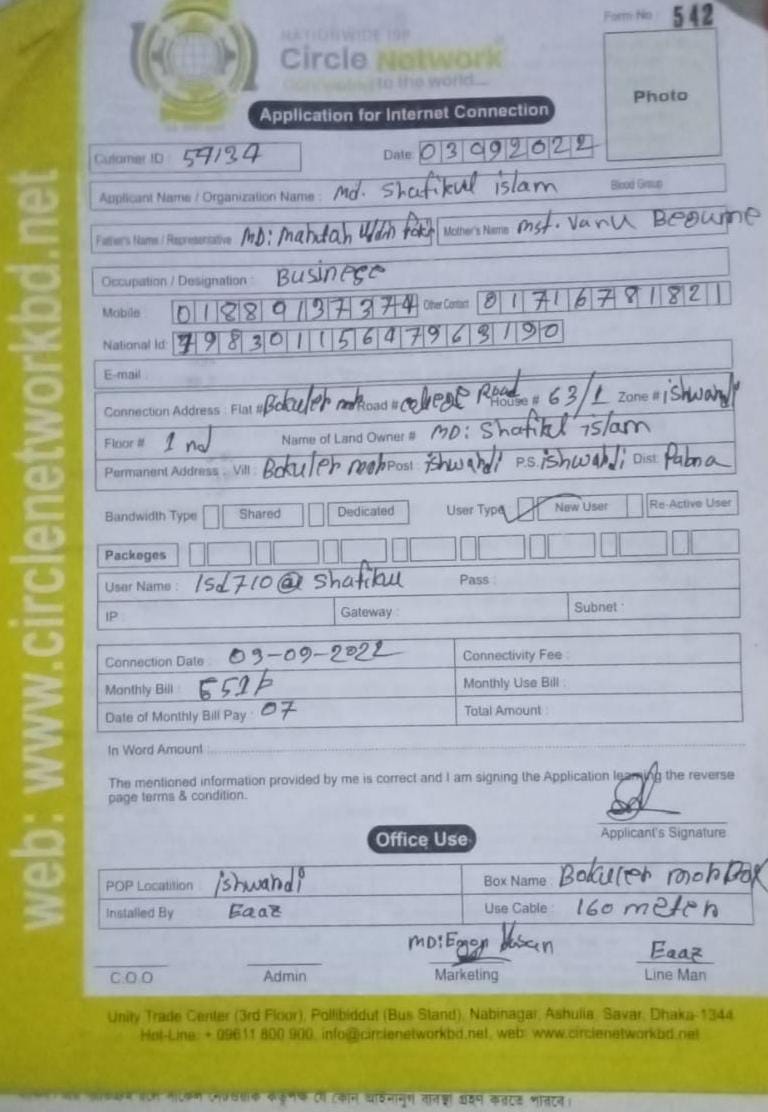 Form No : 542
NATIONWIDE ISP
Circle Network
Connecting to the world...
Photo
Application for Internet Connection
Cutomer ID : 57134 Date: 03092022
Applicant Name / Organization Name : Md. Shafikul islam Blood Group
Father's Name / Representative MD: Mahtah Uddin Mother's Name mst. Vanu Begume
Occupation / Designation : Business
Mobile : 01889137374 Other Contact 01716781821
National Id: 19830115647963190
E-mail :
Connection Address : Flat # Bokuler moh Road # college Road House # 63/1 Zone # ishwardi
Floor # 1 nd Name of Land Owner # MD: Shafikul islam
Permanent Address : Vill : Bokuler moh Post : ishwardi P.S. ishwardi Dist. Pabna
Bandwidth Type Shared Dedicated User Type New User Re-Active User
Packeges
User Name : Isd710@ Shafikul Pass :
IP : Gateway : Subnet :
Connection Date : 03-09-2022 Connectivity Fee :
Monthly Bill : Monthly Use Bill :
Date of Monthly Bill Pay : 07 Total Amount :
In Word Amount :
The mentioned information provided by me is correct and I am signing the Application learning the reverse
page terms & condition.
Applicant's Signature
Office Use
POP Locatition : ishwardi Box Name : Bokuler moh Box
Installed By Eaaz Use Cable : 160 meter
MD: Hasan Eaaz
C.O.O Admin Marketing Line Man
Unity Trade Center (3rd Floor), Pollibiddut (Bus Stand), Nabinagar, Ashulia, Savar, Dhaka-1344
Hot-Line: + 09611 800 900, info@circlenetworkbd.net, web: www.circlenetworkbd.net
web: www.circlenetworkbd.net
যে কোন আইনানুগ ব্যবস্থা গ্রহণ করতে পারবে।